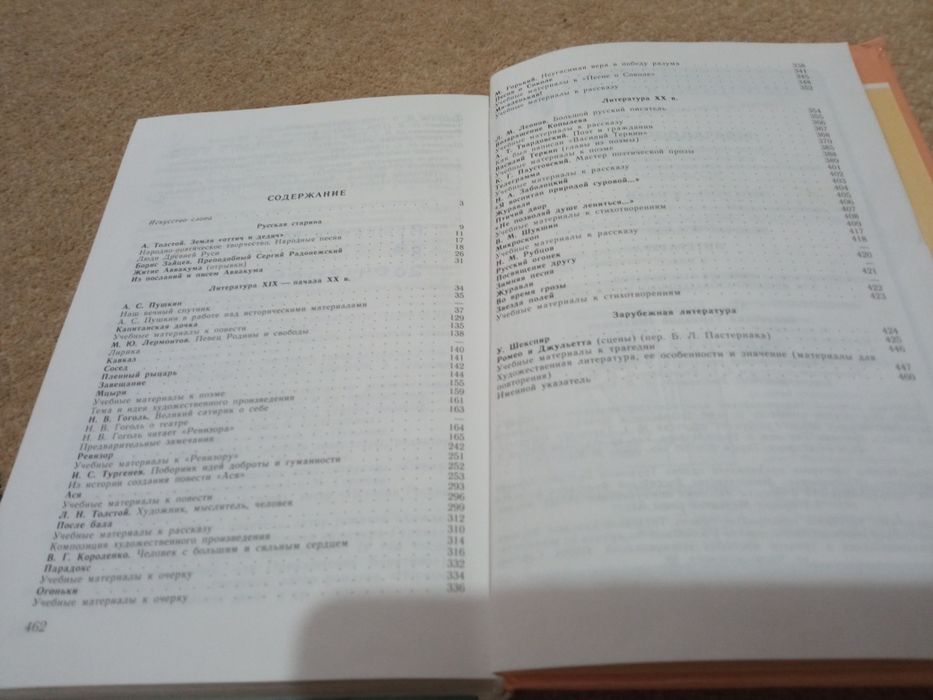 СОДЕРЖАНИЕ
Искусство слова 3
Русская старина
А. Толстой. Земля «оттич и дедич» 9
Народно-поэтическое творчество. Народные песни 11
Люди Древней Руси 17
Борис Зайцев. Преподобный Сергий Радонежский 18
Житие Аввакума (отрывки) 26
Из посланий и писем Аввакума 31
Литература XIX — начала XX в.
А. С. Пушкин 34
Наш вечный спутник 35
А. С. Пушкин в работе над историческими материалами —
Капитанская дочка 37
Учебные материалы к повести 129
М. Ю. Лермонтов. Певец Родины и свободы 135
Лирика 138
Кавказ —
Сосед 140
Пленный рыцарь 141
Завещание 142
Мцыри 144
Учебные материалы к поэме 155
Тема и идея художественного произведения 159
Н. В. Гоголь. Великий сатирик о себе 161
Н. В. Гоголь о театре 163
Н. В. Гоголь читает «Ревизора» —
Предварительные замечания 164
Ревизор 165
Учебные материалы к «Ревизору» 242
И. С. Тургенев. Поборник идей доброты и гуманности 251
Из истории создания повести «Ася» 252
Ася 253
Учебные материалы к повести 293
Л. Н. Толстой. Художник, мыслитель, человек 296
После бала 299
Учебные материалы к рассказу 312
Композиция художественного произведения 310
В. Г. Короленко. Человек с большим и сильным сердцем 314
Парадокс 316
Учебные материалы к очерку 332
Огоньки 334
Учебные материалы к очерку 336
462
М. Горький. Неугасимая вера в победу разума 338
Песня о Соколе 341
Учебные материалы к «Песне о Соколе» 345
Мой 348
Учебные материалы к рассказу 352
Литература XX в.
Л. М. Леонов. Большой русский писатель 354
Возвращение Копылева 355
Учебные материалы к рассказу 366
А. Т. Твардовский. Поэт и гражданин 367
Как был написан «Василий Теркин» 368
Василий Теркин (главы из поэмы) 370
Учебные материалы к поэме 385
К. Г. Паустовский. Мастер поэтической прозы 388
Телеграмма 389
Учебные материалы к рассказу 401
Н. А. Заболоцкий 402
«Я воспитан природой суровой...» 403
Журавли 404
Птичий двор 405
«Не позволяй душе лениться...» 406
Учебные материалы к стихотворениям 407
В. М. Шукшин 408
Микроскоп 409
Учебные материалы к рассказу 417
Н. М. Рубцов 418
Русский огонек —
Посвящение другу 420
Зимняя песня —
Журавли 421
Во время грозы —
Звезда полей 422
Учебные материалы к стихотворениям 423
Зарубежная литература
У. Шекспир 424
Ромео и Джульетта (сцены) (пер. Б. Л. Пастернака) 425
Учебные материалы к трагедии 446
Художественная литература, ее особенности и значение (материалы для
повторения) 447
Именной указатель 460